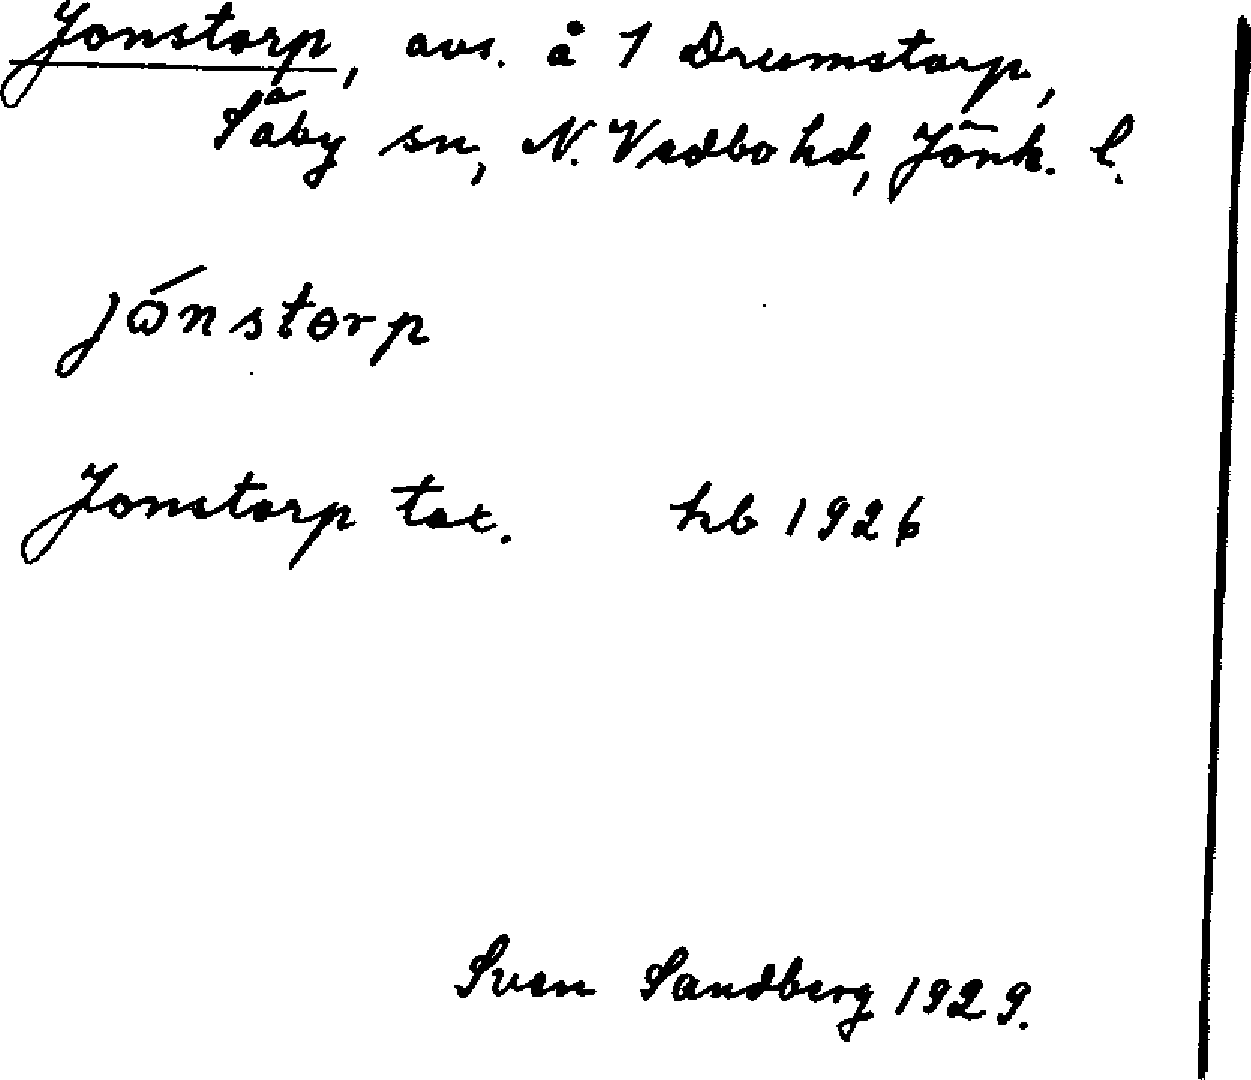 Jonstorp, avs. å 1 Drumstorp,
Säby sn, N. Vedbo hd, Jönk. l.
jónstɵrp
Jonstorp tot. hb 1926
Sven Sandberg 1929.